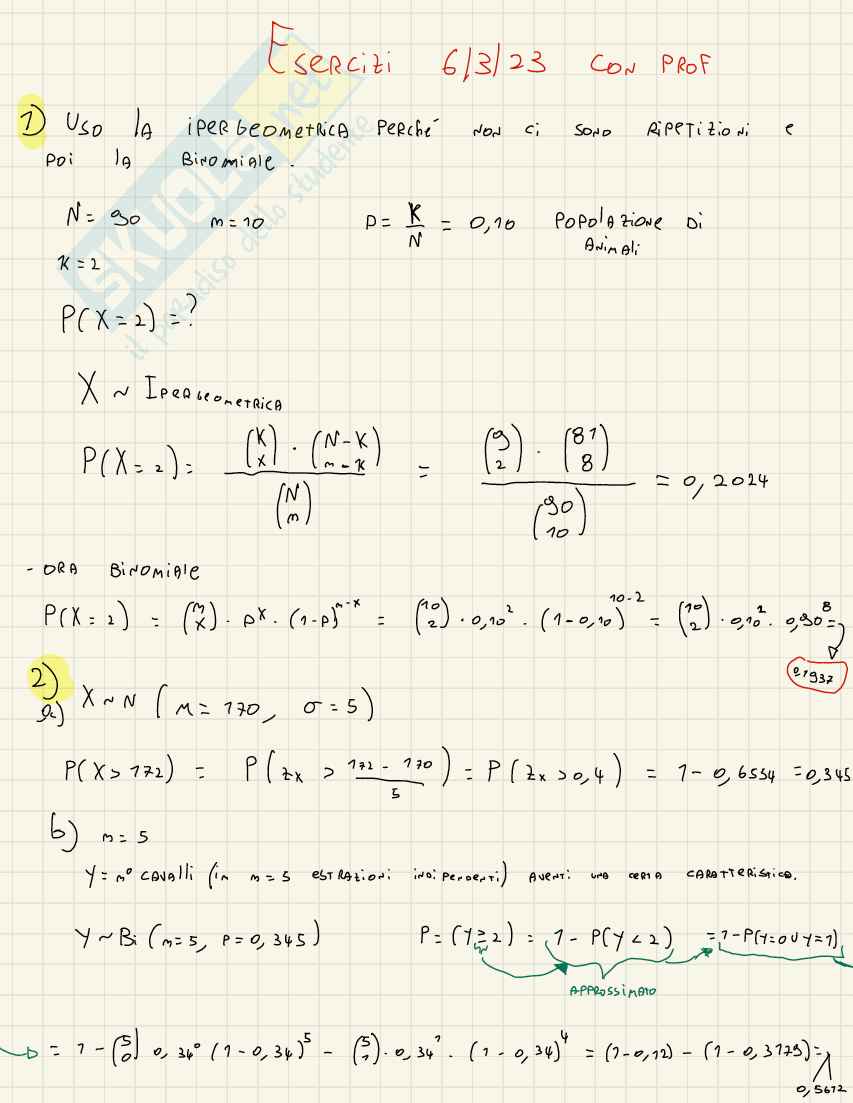 Esercizi 6/3/23 con prof
1) Uso la ipergeometrica perché non ci sono ripetizioni e
poi la binomiale.
N = 90 n = 10 p = K/N = 0,10 popolazione di
animali
K = 2
P(X = 2) = ?
X ~ Ipergeometrica
P(X = 2) = (K x) · (N-K n-K) / (N n) = (9 2) · (81 8) / (90 10) = 0,2024
- ora binomiale
P(X = 2) = (n x) · p^x · (1-p)^n-x = (10 2) · 0,10^2 · (1-0,10)^10-2 = (10 2) · 0,10^2 · 0,90^8 =
0,1937
2)
a) X ~ N (μ = 170, σ = 5)
P(X > 172) = P(zx > 172 - 170 / 5) = P(zx > 0,4) = 1 - 0,6554 = 0,345
b) n = 5
Y = n° cavalli (in n = 5 estrazioni indipendenti) aventi una certa caratteristica.
Y ~ Bi (n = 5, p = 0,345) P = (Y ≥ 2) = 1 - P(Y < 2) = 1 - P(Y = 0 ∪ Y = 1)
approssimato
= 1 - (5 0) 0,34^0 (1 - 0,34)^5 - (5 1) · 0,34^1 · (1 - 0,34)^4 = (1 - 0,12) - (1 - 0,3179) =
0,5612
SKUOLA.net
il paradiso dello studente